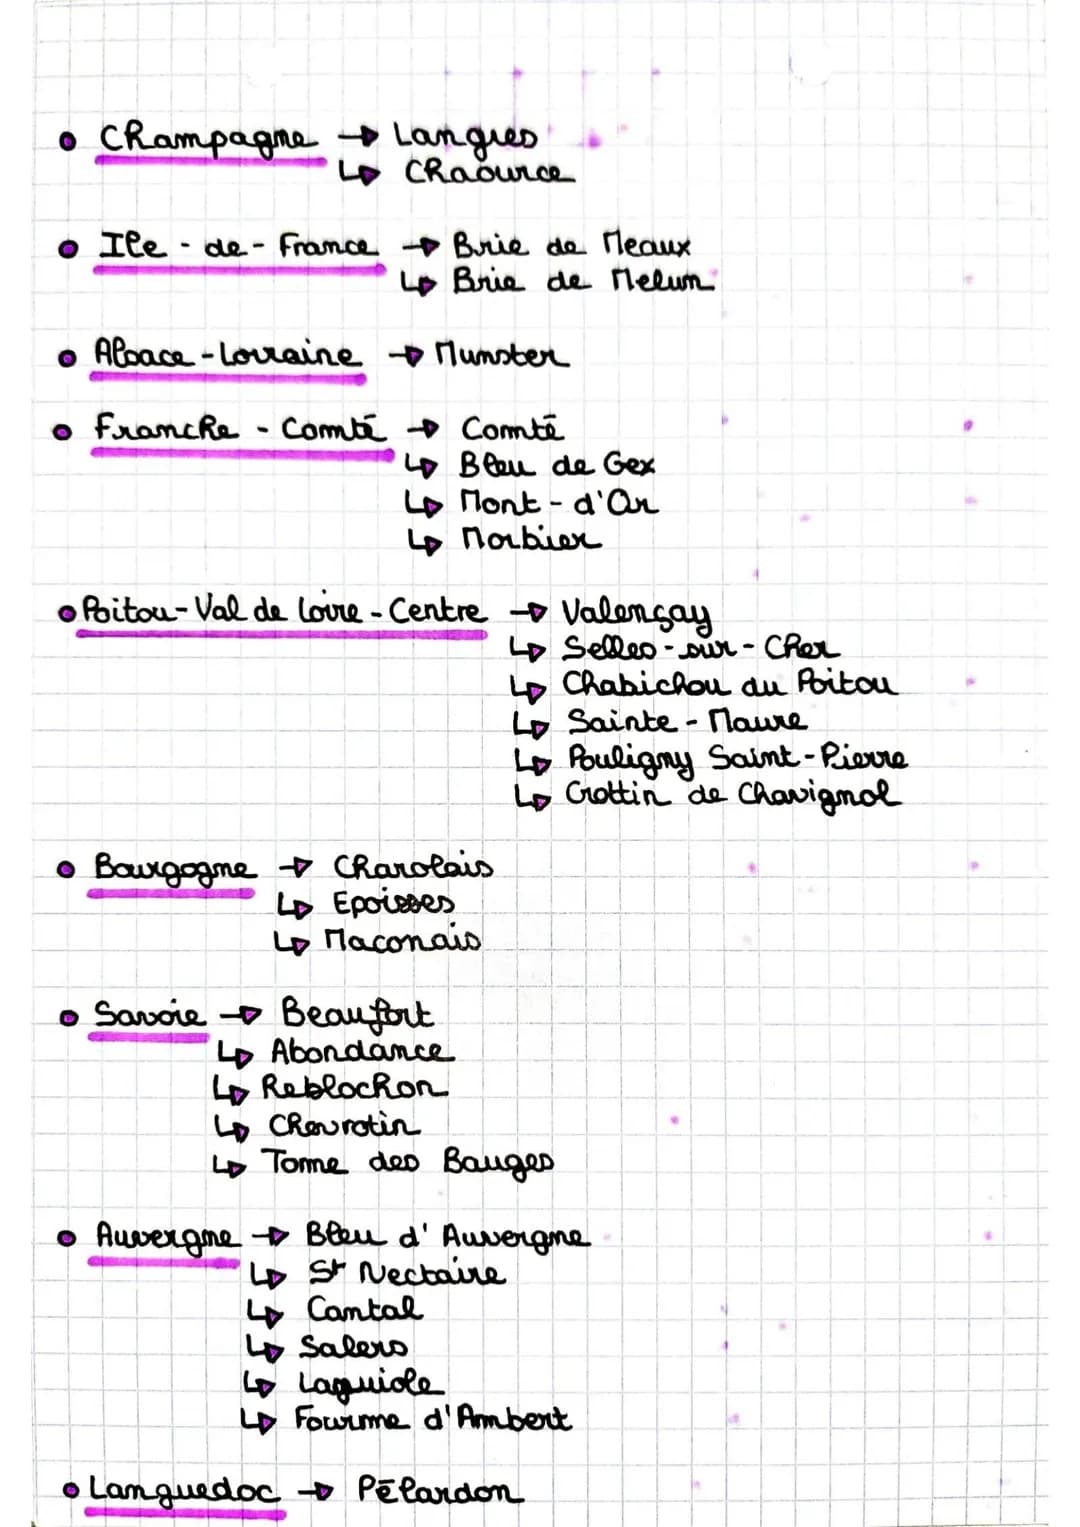 • Champagne → Langres
↳ Chaource
• Ile - de - France → Brie de Meaux
↳ Brie de Melun
• Alsace - Lorraine → Munster
• Franche - Comté → Comté
↳ Bleu de Gex
↳ Mont - d'Or
↳ Morbier
• Poitou - Val de Loire - Centre → Valençay
↳ Selles - sur - Cher
↳ Chabichou du Poitou
↳ Sainte - Maure
↳ Pouligny Saint - Pierre
↳ Crottin de Chavignol
• Bourgogne → Charolais
↳ Epoisses
↳ Maconais
• Savoie → Beaufort
↳ Abondance
↳ Reblochon
↳ Chevrotin
↳ Tome des Bauges
• Auvergne → Bleu d'Auvergne
↳ St Nectaire
↳ Cantal
↳ Salers
↳ Laguiole
↳ Fourme d'Ambert
• Languedoc → Pélardon